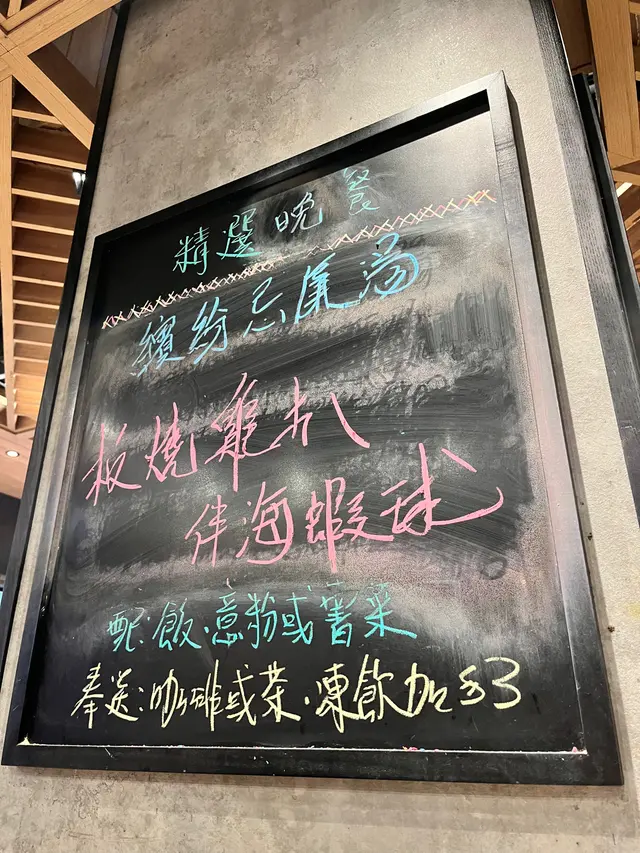 精選晚餐
繽紛忌廉湯
板燒雞扒
伴海蝦球
配:飯.意粉或薯菜
奉送:咖啡或茶.凍飲加$3